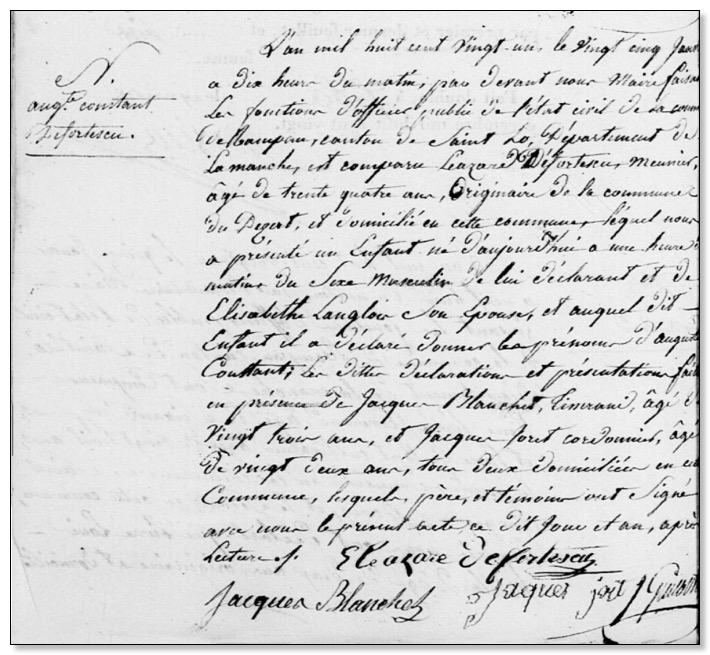 N.
aug.te constant
Defortescu.
L'an mil huit cent vingt-un, le vingt cinq Janv
a dix heure du matin, par devant nous Maire faisa
Les fonctions d'officier public de l'état civil de la comm
de Rampan, canton de Saint Lo, Département de
La manche, est comparu Leazare Défortescu, Meunier,
âgé de trente quatre ans, Originaire de la commune
du Dezert, et domicilié en cette commune, lequel nous
a présenté un Enfant né d'aujourd'hui a une heure d
matin du Sexe Masculin de lui déclarant et de
Elisabethe Langlois Son Epouse, et auquel dit
Enfant il a déclaré donner les prénoms d'auguste
Constant; Les dittes déclarations et présentations fait
en présence de Jacques Blanchet, Tisserand, âgé d
Vingt trois ans, et Jacques Joret cordonnier, âgé
De vingt deux ans, tous deux domiciliés en cett
Commune, lesquels, père, et témoins ont Signé
avec nous le présent acte, ce dit Jour et an, après
Lecture.
Eleazare Defortescu
Jacques Blanchet
Jacques joret